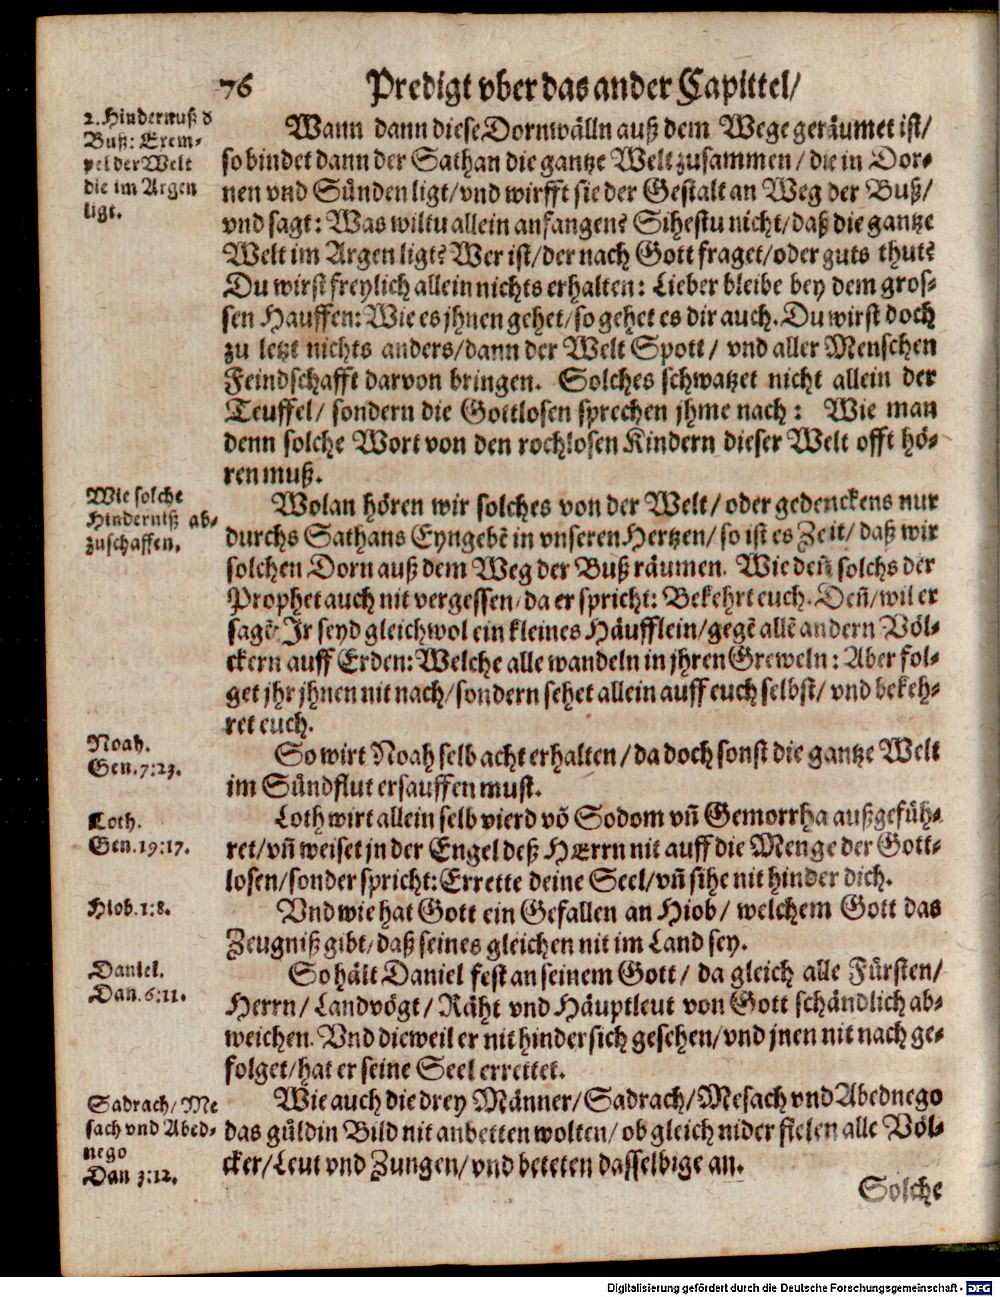 76 Predigt vber das ander Capittel/
2. Hindernuß d
Buß: Exem-
pel der Welt
die im Argen
ligt.
Wann dann diese Dornwälln auß dem Wege geräumet ist/
so bindet dann der Sathan die gantze Welt zusammen/ die in Dor-
nen vnd Sünden ligt/ vnd wirfft sie der Gestalt an Weg der Buß/
vnd sagt: Was wiltu allein anfangen? Sihestu nicht/ daß die gantze
Welt im Argen ligt? Wer ist/ der nach Gott fraget/ oder guts thut?
Du wirst freylich allein nichts erhalten: Lieber bleibe bey dem gros-
sen Hauffen: Wie es jhnen gehet/ so gehet es dir auch. Du wirst doch
zu letzt nichts anders/ dann der Welt Spott/ vnd aller Menschen
Feindschafft darvon bringen. Solches schwatzet nicht allein der
Teuffel/ sondern die Gottlosen sprechen jhme nach: Wie man
denn solche Wort von den rochlosen Kindern dieser Welt offt hö-
ren muß.
Wie solche
Hinderniß ab-
zuschaffen.
Wolan hören wir solches von der Welt/ oder gedenckens nur
durchs Sathans Eyngebẽ in vnseren Hertzen/ so ist es Zeit/ daß wir
solchen Dorn auß dem Weg der Buß räumen. Wie deñ solchs der
Prophet auch nit vergessen/ da er spricht: Bekehrt euch. Deñ/ wil er
sagẽ: Jr seyd gleichwol ein kleines Häufflein/ gegẽ allẽ andern Völ-
ckern auff Erden: Welche alle wandeln in jhren Greweln: Aber fol-
get jhr jhnen nit nach/ sondern sehet allein auff euch selbst/ vnd bekeh-
ret euch.
Noah.
Gen. 7:23.
So wirt Noah selb acht erhalten/ da doch sonst die gantze Welt
im Sündflut ersauffen must.
Loth.
Gen. 19:17.
Loth wirt allein selb vierd võ Sodom vñ Gemorrha außgefüh-
ret/ vñ weiset jn der Engel deß HErrn nit auff die Menge der Gott-
losen/ sonder spricht: Errette deine Seel/ vñ sihe nit hinder dich.
Hiob. 1:8.
Vnd wie hat Gott ein Gefallen an Hiob/ welchem Gott das
Zeugniß gibt/ daß seines gleichen nit im Land sey.
Daniel.
Dan. 6:11.
So hält Daniel fest an seinem Gott/ da gleich alle Fürsten/
Herrn/ Landvögt/ Räht vnd Häuptleut von Gott schändlich ab-
weichen. Vnd dieweil er nit hinder sich gesehen/ vnd jnen nit nach ge-
folget/ hat er seine Seel errettet.
Sadrach/ Me
sach vnd Abed-
nego
Dan 3:12.
Wie auch die drey Männer/ Sadrach/ Mesach vnd Abednego
das güldin Bild nit anbetten wolten/ ob gleich nider fielen alle Völ-
cker/ Leut vnd Zungen/ vnd beteten dasselbige an.
Solche
Digitalisierung gefördert durch die Deutsche Forschungsgemeinschaft - DFG